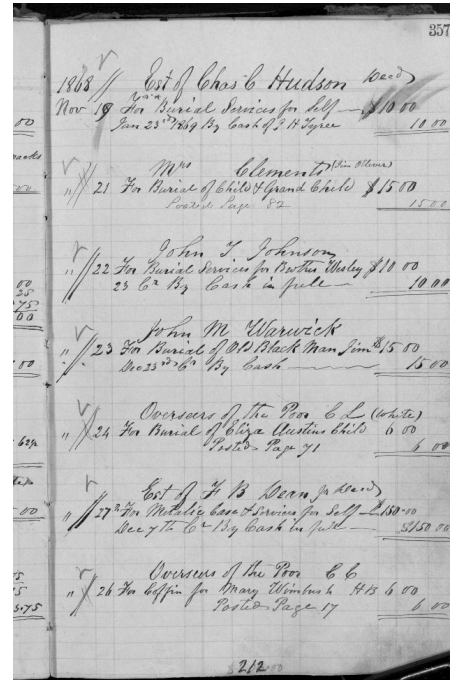 357
1868 // Est of Chas C Hudson Decd
Nov 19 For Burial Services for Self — $10 00
Jan 23rd 1869 By Cash of J H Tyree 10 00
Mrs Clements (Jim Olliver)
" // 21 For Burial of Child & Grand Child $15 00
Posted Page 82 15 00
John T Johnson
" // 22 For Burial Services for Brother Wesley $10 00
23 Cr By Cash in full — 10 00
John M Warwick
" // 23 For Burial of Old Black Man Jim $15 00
Dec 23rd Cr By Cash — 15 00
Overseers of the Poor C L (White)
" // 24 For Burial of Eliza Austins Child 6 00
Posted Page 71 6 00
Est of F B Dean Jr Decd
" // 27th For Metalic Case & Services for Self — $150.00
Dec 7th Cr By Cash in full — $150 00
Overseers of the Poor C C
" // 26 For Coffin for Mary Wimbush HB 6 00
Posted Page 17 6 00
212.00
00
00
00
25
.75
00
00
62½
00
75
75
3.75